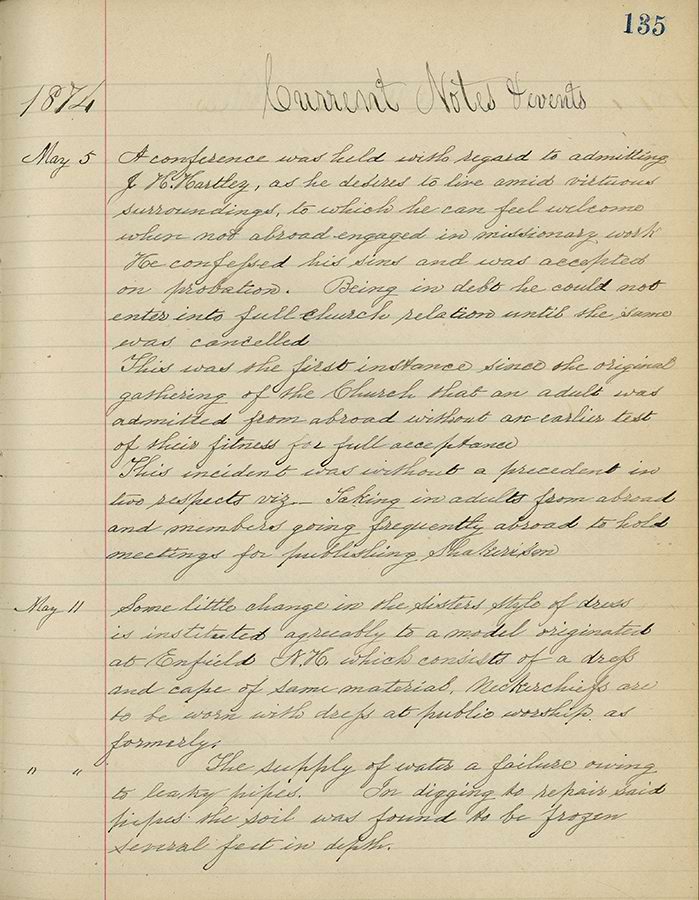 135
1874 Current Notes & events
May 5 A conference was held with regard to admitting
J H. Hartley, as he desires to live amid virtuous
surroundings, to which he can feel welcome
when not abroad engaged in missionary work
He confessed his sins and was accepted
on probation. Being in debt he could not
enter into full church relation until the same
was cancelled
This was the first instance since the original
gathering of the Church that an adult was
admitted from abroad without an earlier test
of their fitness for full acceptance
This incident was without a precedent in
two respects viz— Taking in adults from abroad
and members going frequently abroad to hold
meetings for publishing Shakerism
May 11 Some little change in the sisters style of dress
is instituted agreeably to a model originated
at Enfield N.H. which consists of a dress
and cape of same material. Neckerchiefs are
to be worn with dress at public worship as
formerly.
" " The supply of water a failure owing
to leaky pipes. In digging to repair said
pipes the soil was found to be frozen
several feet in depth.